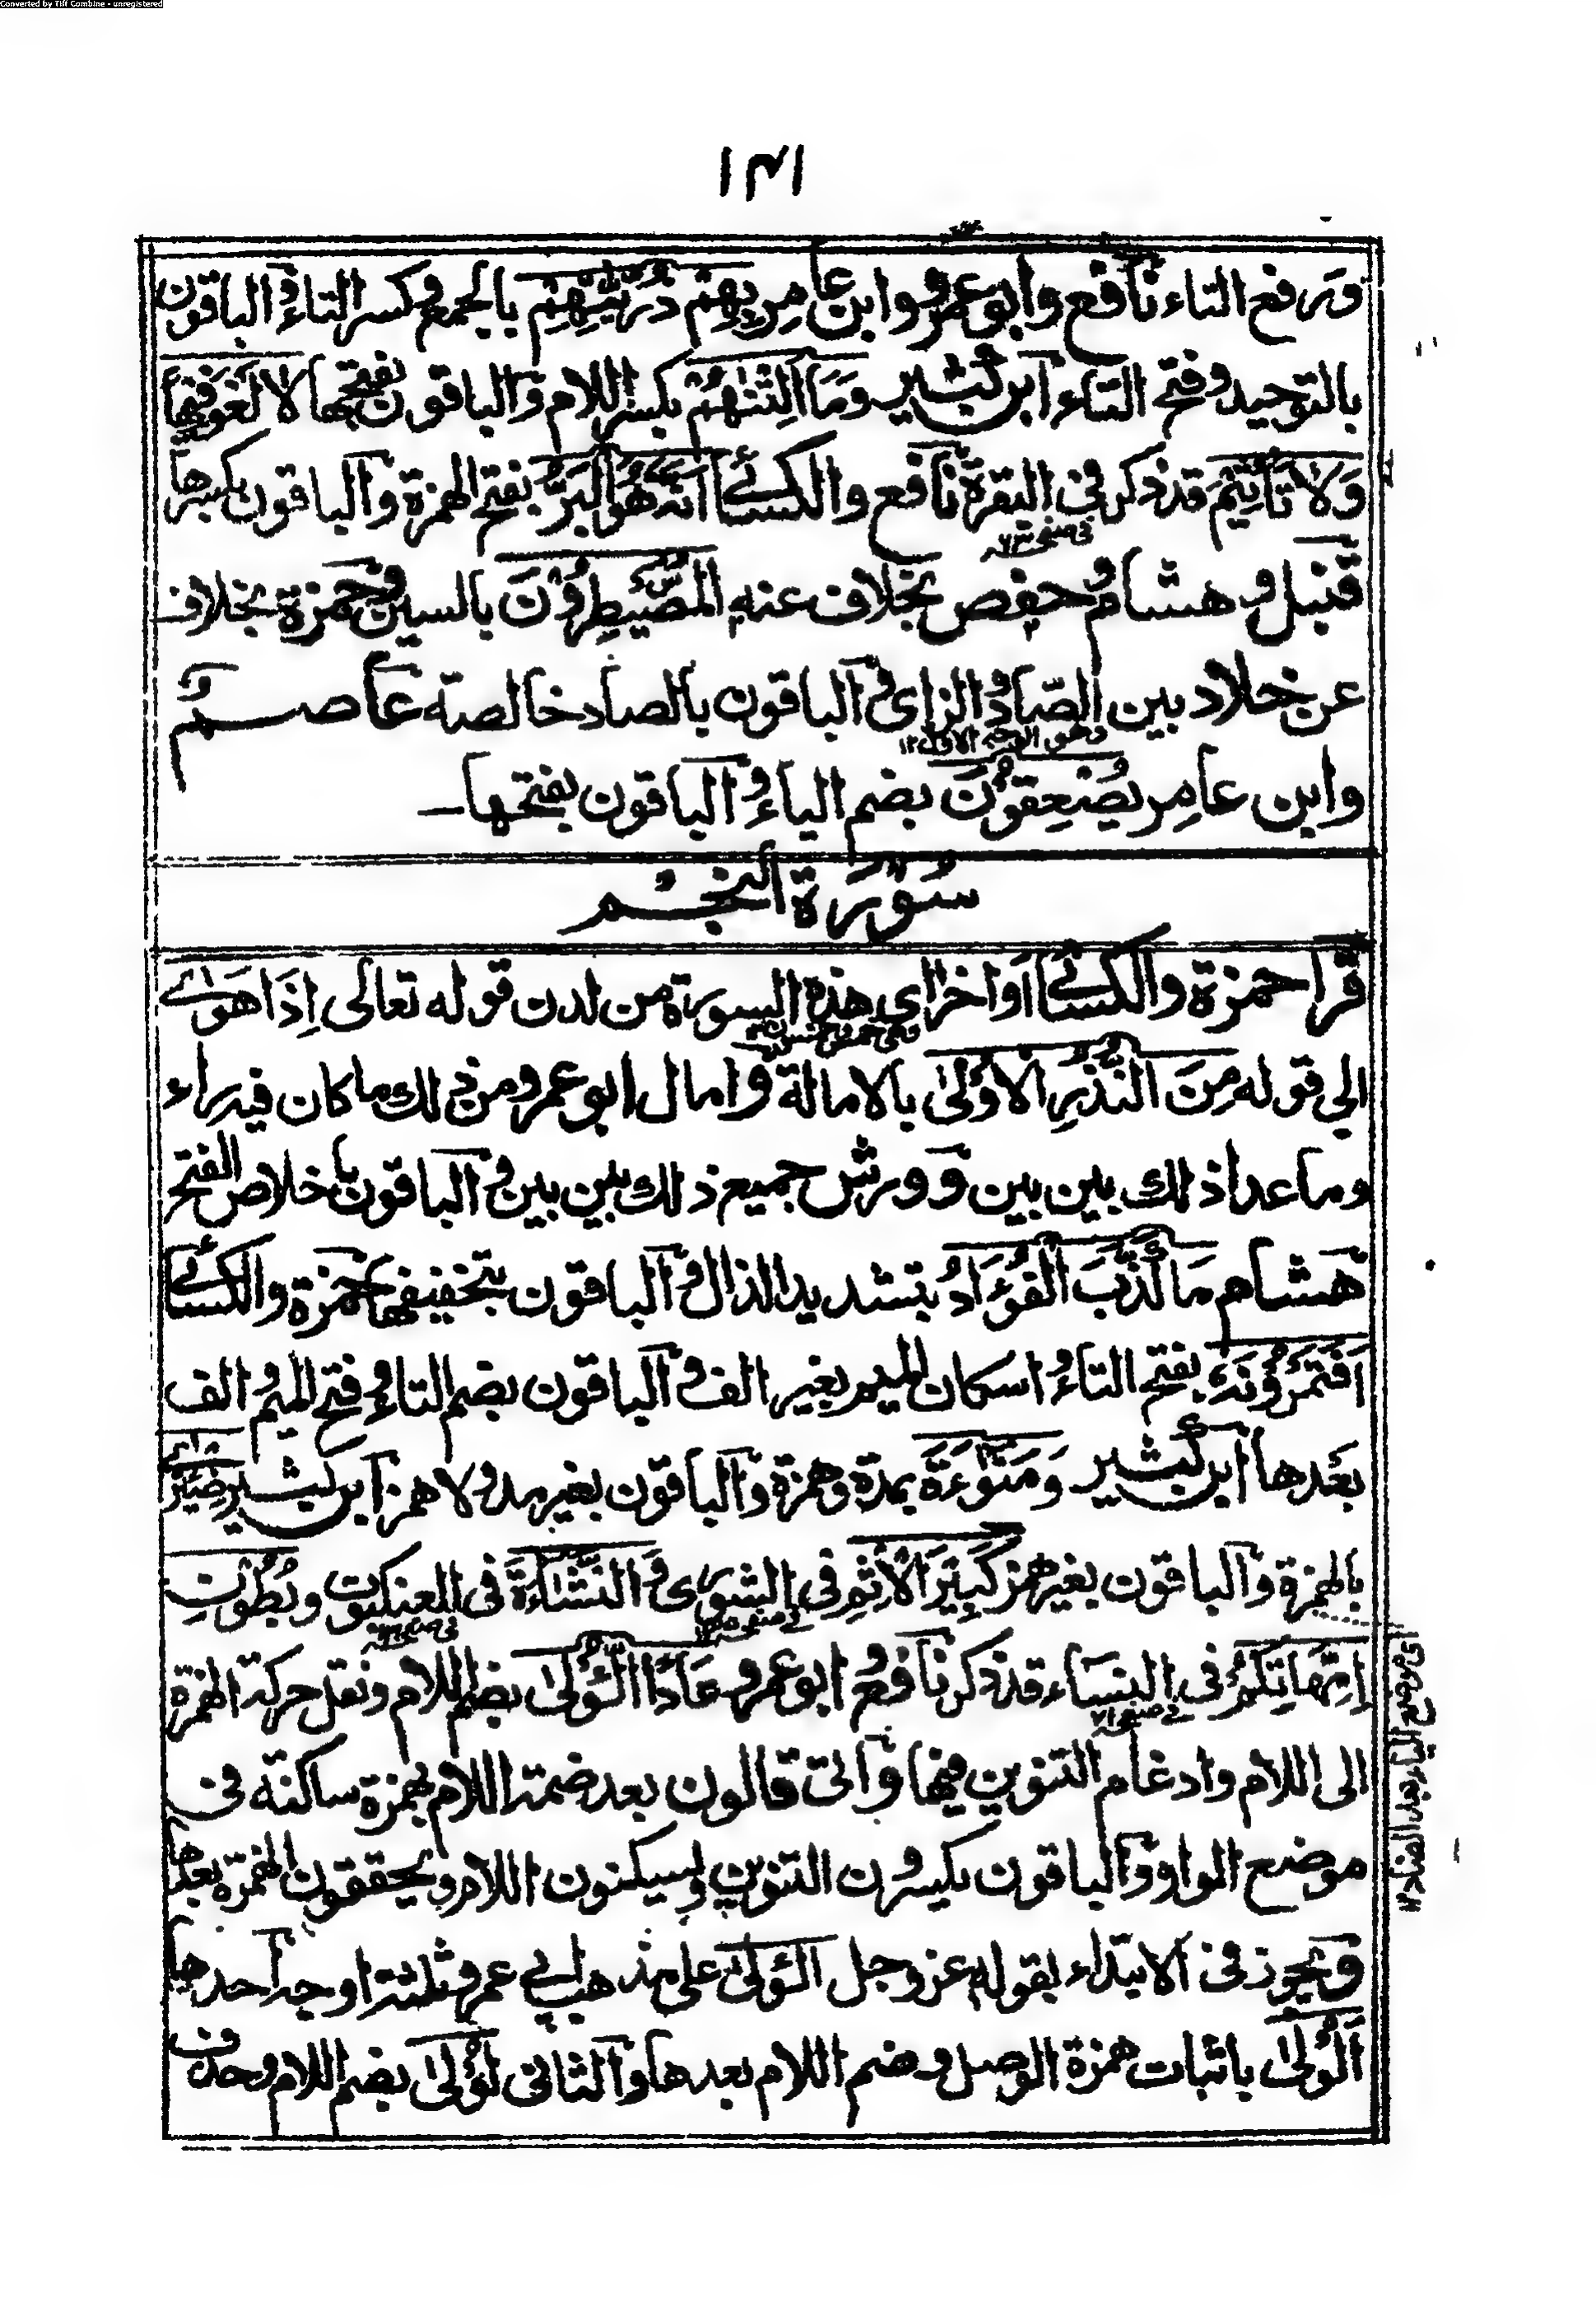 Converted by Tiff Combine - unregistered
١٣١
ورفع التاء نافع وابو عمرو وابن عامر بهم ذريتهم بالجمع وكسر التاء والباقون
بالتوحيد وفتح التاء ابن كثير وَمَا اَلِتْنٰهُمْ بكسر اللام والباقون بفتحها لا لَغْوٌ فِيْهَا
وَلا تَأثِيْمَ قد ذكر فى البقرة نافع والكسائے اَنَّهٗ هُوَ الْبَرُّ بفتح الهمزة والباقون بكسرها
فى صفحه ٦٣
قنبل وهشام وحفص بخلاف عنه المُصَّيْطِرُوْنَ بالسين وحمزة بخلاف
عن خلاد بين الصّاد والزاى والباقون بالصاد خالصة عاصم
وهو الوجه الاول ١٢
وابن عامر يُصْعَقُوْنَ بضم الياء والباقون بفتحها
سُوْرَةُ النجم
قرا حمزة والكسائے اواخر اى هذه السورة من لدن قوله تعالى اِذَا هَوٰے
الي قوله مِنَ النُّذُرِ الْاُوْلٰى بالامالة وامال ابو عمرو من ذلك ما كان فيه راء
وما عدا ذلك بين بين وورش جميع ذلك بين بين والباقون باخلاص الفتح
هشام مَا كَذَّبَ الْفُؤَادُ بتشديد الذال والباقون بتخفيفها حمزة والكسائے
اَفَتَمْرُوْنَهٗ بفتح التاء واسكان الميم بغير الف والباقون بضم التاء وفتح الميم والف
بعدها ابن كثير وَمَنٰوءَةَ بمدة وهمزة والباقون بغير مد ولا همز ابن كثير ضِئْزٰے
بالهمزة والباقون بغير همز كَبِيْرَ الْاِثْمِ فى الشورى وَ النَّشْاَةَ فى العنكبوت وبُطُوْنِ
اِمَّهَاتِكُمْ فى النساء قد ذكر نافع وابو عمرو عَادًا الُّوْلٰى بضم اللام ونقل حركة الهمزة
فى صفحه ٧١
الى اللام وادغام التنوين فيها واتى قالون بعد ضمة اللام بهمزة ساكنة فى
موضع الواو والباقون يكسرون التنوين ويسكنون اللام ويحققون الهمزة بعدها
ويجوز فى الابتداء بقوله عز وجل الُوْلٰى على مذهب ابى عمرو ثلثة اوجه احدها
اَلُوْلٰى باثبات همزة الوصل وضم اللام بعدها والثانى لُوْلٰى بضم اللام وحذف